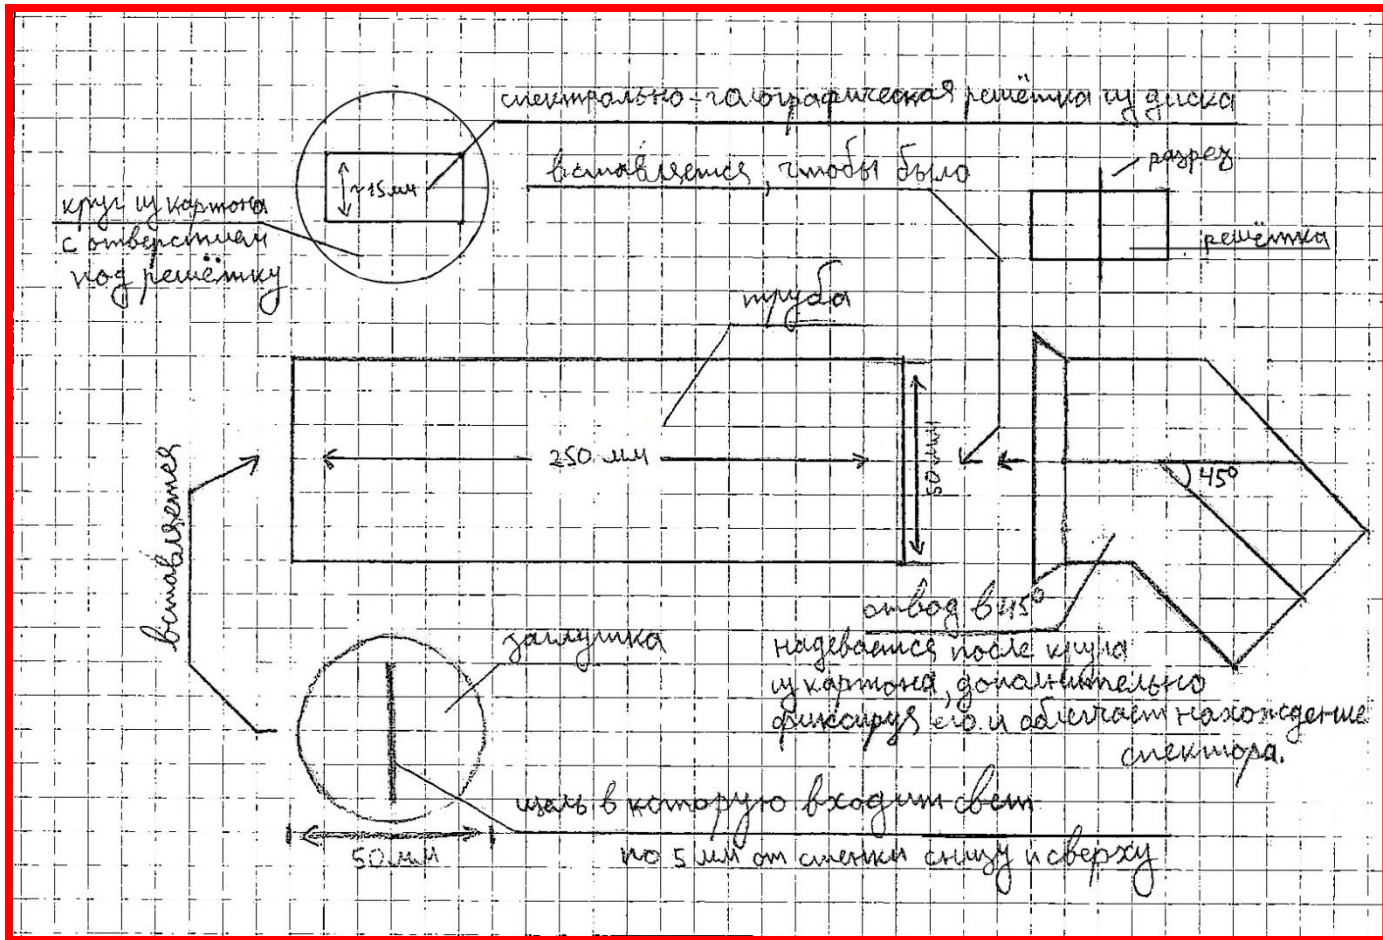 спектрально-голографическая решётка из диска
вставляется, чтобы было
разрез
~15мм
круг из картона
с отверстием
под решётку
решётка
труба
250 мм
50 мм
45°
вставляется
отвод в 45°
надевается после круга
из картона, дополнительно
фиксируя его и облегчает нахождение
спектора.
заглушка
щель в которую входит свет
по 5 мм от стенки снизу и сверху
50 мм